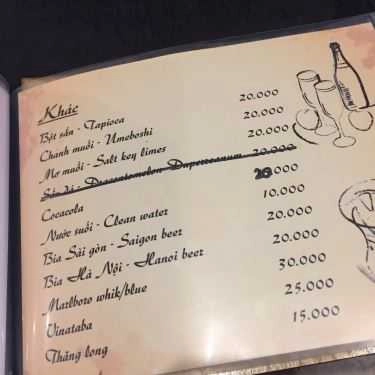 Khác
Bột sắn - Tapioca 20.000
Chanh muối - Umeboshi 20.000
Mơ muối - Salt key limes 20.000
Sấu đá - Dracontomelon Duperreanum 20.000
Cocacola 20.000
Nước suối - Clean water 10.000
Bia Sài gòn - Saigon beer 20.000
Bia Hà Nội - Hanoi beer 20.000
Marlboro whik/blue 30.000
Vinataba 25.000
Thăng long 15.000